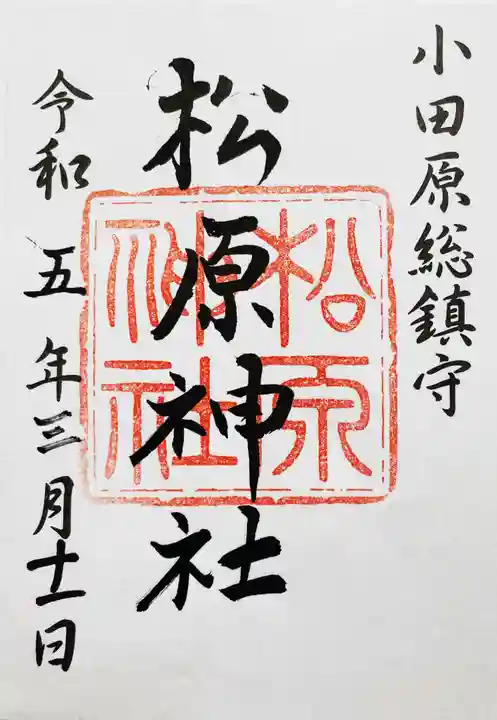 小田原総鎮守
松原神社
松原神社
令和五年三月十一日